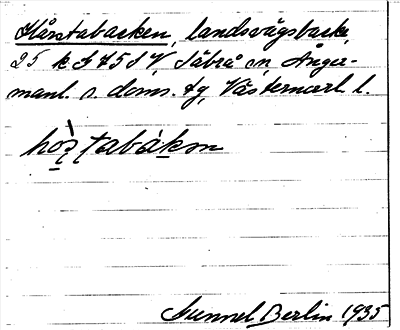 Hårstabacken, landsvägsbacke,
25 k S 45 S V, Säbrå sn, Ånger-
manl. s. doms. fg, Västernorrl. l.
hò̤ʂtabákən
Gunnel Berlin 1935